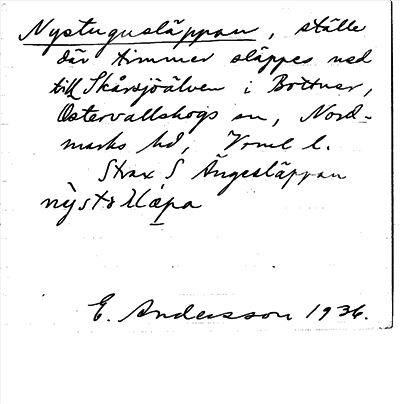 Nystugusläppan, ställe
där timmer släppes ned
till Skårsjöälven i Bottner,
Östervallskogs sn, Nord-
marks hd, Vrml l.
Strax S Ängesläppan
E. Andersson 1936.